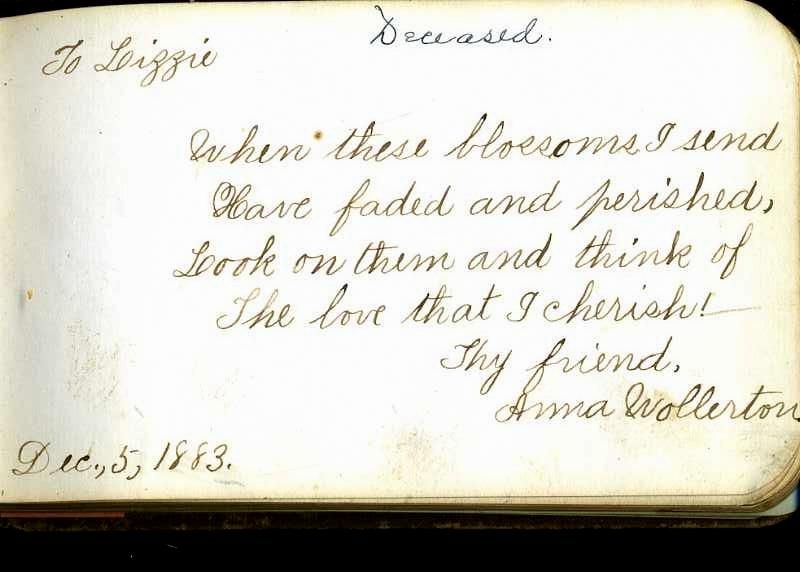 Deceased.
To Lizzie
When these blossoms I send
Have faded and perished,
Look on them and think of
The love that I cherish!
Thy friend,
Anna Wollerton
Dec., 5, 1883.